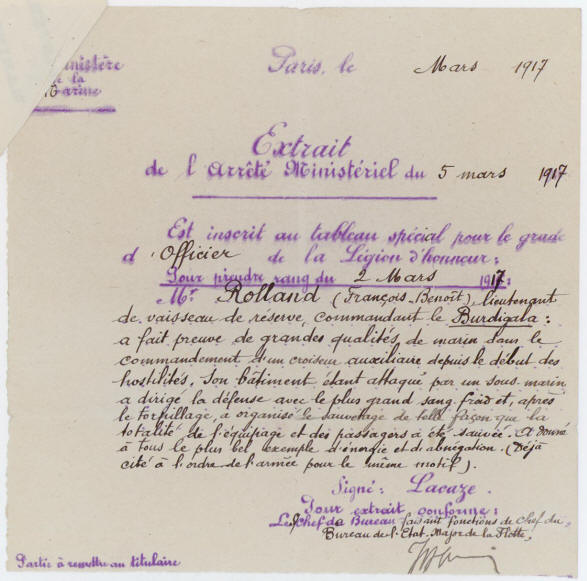 Ministère
de la
Marine
Paris, le Mars 1917
Extrait
de l'Arrêté Ministériel du 5 mars 1917
Est inscrit au tableau spécial pour le grade
d'Officier de la Légion d'honneur:
Pour prendre rang du 2 Mars 1917:
Mr. Rolland (François-Benoît), lieutenant
de vaisseau de réserve, commandant le Burdigala:
a fait preuve de grandes qualités de marin dans le
commandement d'un croiseur auxiliaire depuis le début des
hostilités. Son bâtiment étant attaqué par un sous-marin
a dirigé la défense avec le plus grand sang froid et, après
le torpillage, a organisé le sauvetage de telle façon que la
totalité de l'équipage et des passagers a été sauvée. A donné
à tous le plus bel exemple d'énergie et d'abnégation. (Déjà
cité à l'ordre de l'armée pour le même motif).
Signé: Lacaze.
Pour extrait conforme:
Le Chef de Bureau faisant fonctions de Chef du
Bureau de l'Etat-Major de la Flotte,
Partie à remettre au titulaire